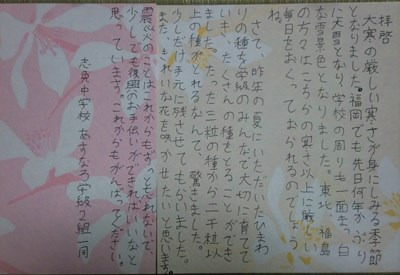 拝啓
大寒の厳しい寒さが身にしみる季節
となりました。福岡でも先日何年かぶり
に大雪となり、学校の周りも一面真っ白
な雪景色となりました。東北、福島
の方々はこちらの寒さ以上に厳しい
毎日をおくっておられるのでしょう
ね。
さて、昨年の夏にいただいたひまわ
りの種を学級のみんなで大切に育てて
いき、たくさんの種をとることができ
ました。たった三粒の種から二千粒以
上の種がとれるなんて、驚きました。
少しだけ手元に残させてもらいました。
また、きれいな花を咲かせたいと思います。
震災のことはこれからもずっと忘れないで
少しでも復興のお手伝いができればいいなと
思っています。これからもがんばってください。
志免中学校 あすなろ学級2組一同